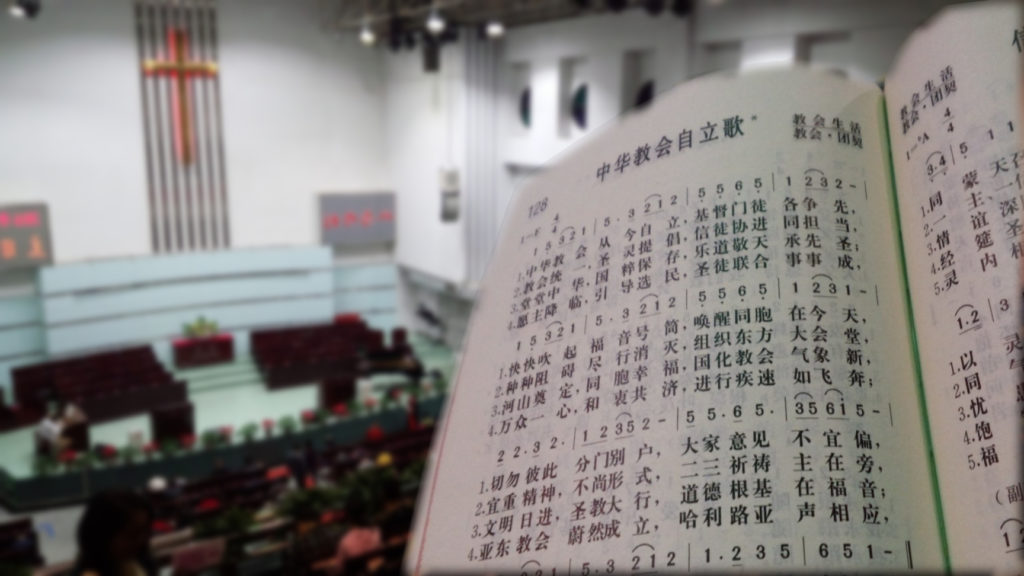 中华教会自立歌*
教会生活
教会·团契
128
1=F 4/4
1 5 3 2 1 | 5. 3 2 1 2 | 5 5 6 5 | 1 2 3 2 - |
1.中华教会，从今自立，基督门徒各争先，
2.教会统一，圣灵提倡，信徒协进同担当，
3.堂堂中华，国粹保存，乐道敬天承先圣；
4.愿主降临，引导选民，圣徒联合事事成，
1 5 3 2 1 | 5. 3 2 1 2 | 5 5 6 5 | 1 2 3 1 - |
1.快快吹起福音号筒，唤醒同胞在今天，
2.种种阻碍尽行消灭，组织东方大会堂，
3.河山奠定，同胞幸福，国化教会气象新，
4.万众一心，和衷共济，进行疾速如飞奔；
2 2. 3 2. | 1 2 3 5 2 - | 5 5. 6 5. | 3 5 6 1 5 - |
1.切勿彼此分门别户，大家意见不宜偏，
2.宜重精神，不尚形式，二三祈祷主在旁，
3.文明日进，圣教大行，道德根基在福音；
4.亚东教会蔚然成立，哈利路亚声相应，
3 2 1 | 5.3 2 1 2 | 1. 2 3 5 | 6 5 1 - ‖
教会生活
教会·团契
1=♭A 4/4
3·4 | 5 1 1
1.同蒙
2.一主
3.情谊
4.经筵
5.灵内
1·2 | 3
1.以
2.同
3.忧
4.饱
5.福
（副